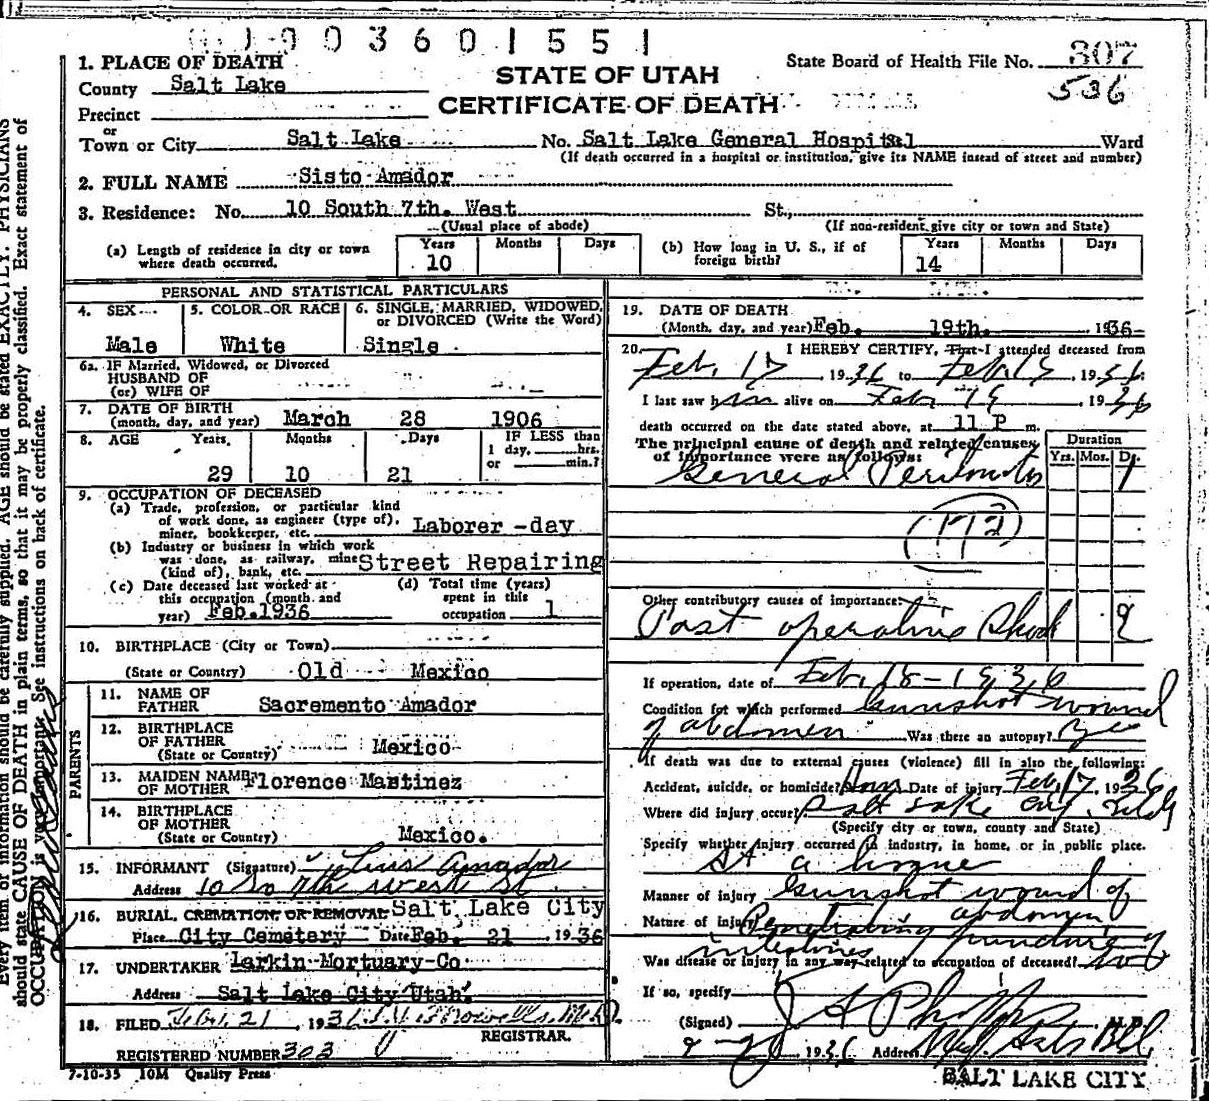 003601551
1. PLACE OF DEATH
County Salt Lake
STATE OF UTAH
CERTIFICATE OF DEATH
State Board of Health File No. 307
536
Precinct
or
Town or City Salt Lake No. Salt Lake General Hospital Ward
(If death occurred in a hospital or institution, give its NAME instead of street and number)
2. FULL NAME Sisto Amador
3. Residence: No. 10 South 7th. West St.,
(Usual place of abode) (If non-resident give city or town and State)
(a) Length of residence in city or town where death occurred. Years 10 Months Days
(b) How long in U. S., if of foreign birth? Years 14 Months Days
PERSONAL AND STATISTICAL PARTICULARS
4. SEX Male
5. COLOR OR RACE White
6. SINGLE, MARRIED, WIDOWED, or DIVORCED (Write the Word) Single
6a. IF Married, Widowed, or Divorced
HUSBAND OF
(or) WIFE OF
7. DATE OF BIRTH
(month, day, and year) March 28 1906
8. AGE Years 29 Months 10 Days 21
IF LESS than
1 day, hrs.
or min.?
9. OCCUPATION OF DECEASED
(a) Trade, profession, or particular kind
of work done, as engineer (type of),
miner, bookkeeper, etc. Laborer -day
(b) Industry or business in which work
was done, as railway, mine
(kind of), bank, etc. Street Repairing
(c) Date deceased last worked at
this occupation (month and
year) Feb.1936
(d) Total time (years)
spent in this
occupation 1
10. BIRTHPLACE (City or Town)
(State or Country) Old Mexico
PARENTS
11. NAME OF
FATHER Sacremento Amador
12. BIRTHPLACE
OF FATHER
(State or Country) Mexico
13. MAIDEN NAME
OF MOTHER Florence Mastinez
14. BIRTHPLACE
OF MOTHER
(State or Country) Mexico.
15. INFORMANT (Signature) Luis Amador
Address 10 So 7th West St
16. BURIAL, CREMATION, OR REMOVAL Salt Lake City
Place City Cemetery Date Feb. 21 1936
17. UNDERTAKER Larkin Mortuary Co
Address Salt Lake City Utah.
18. FILED Feb. 21, 1936
REGISTRAR.
REGISTERED NUMBER 303
7-10-35 10M Quality Press
19. DATE OF DEATH
(Month, day, and year) Feb. 19th. 1936
20. I HEREBY CERTIFY, That I attended deceased from
Feb. 17 1936 to Feb. 19 1936
I last saw him alive on Feb 19 1936
death occurred on the date stated above, at 11 P m.
The principal cause of death and related causes
of importance were as follows:
Duration
Yrs. Mos. Ds.
General Peritonitis 1
(172)
Other contributory causes of importance:
Post operative Shock 2
If operation, date of Feb. 18-1936
Condition for which performed Gunshot wound
of abdomen Was there an autopsy? Yes
If death was due to external causes (violence) fill in also the following:
Accident, suicide, or homicide? Hom Date of injury Feb. 17, 1936
Where did injury occur? Salt Lake City, Utah
(Specify city or town, county and State)
Specify whether injury occurred in industry, in home, or in public place.
At a home
Manner of injury Gunshot wound of abdomen
Nature of injury Penetrating puncture of
intestines
Was disease or injury in any way related to occupation of deceased? no
If so, specify
(Signed) M. D.
2-20 1936 Address
SALT LAKE CITY
Every item of information should be carefully supplied. AGE should be stated EXACTLY. PHYSICIANS
should state CAUSE OF DEATH in plain terms, so that it may be properly classified. Exact statement of
OCCUPATION is very important. See instructions on back of certificate.